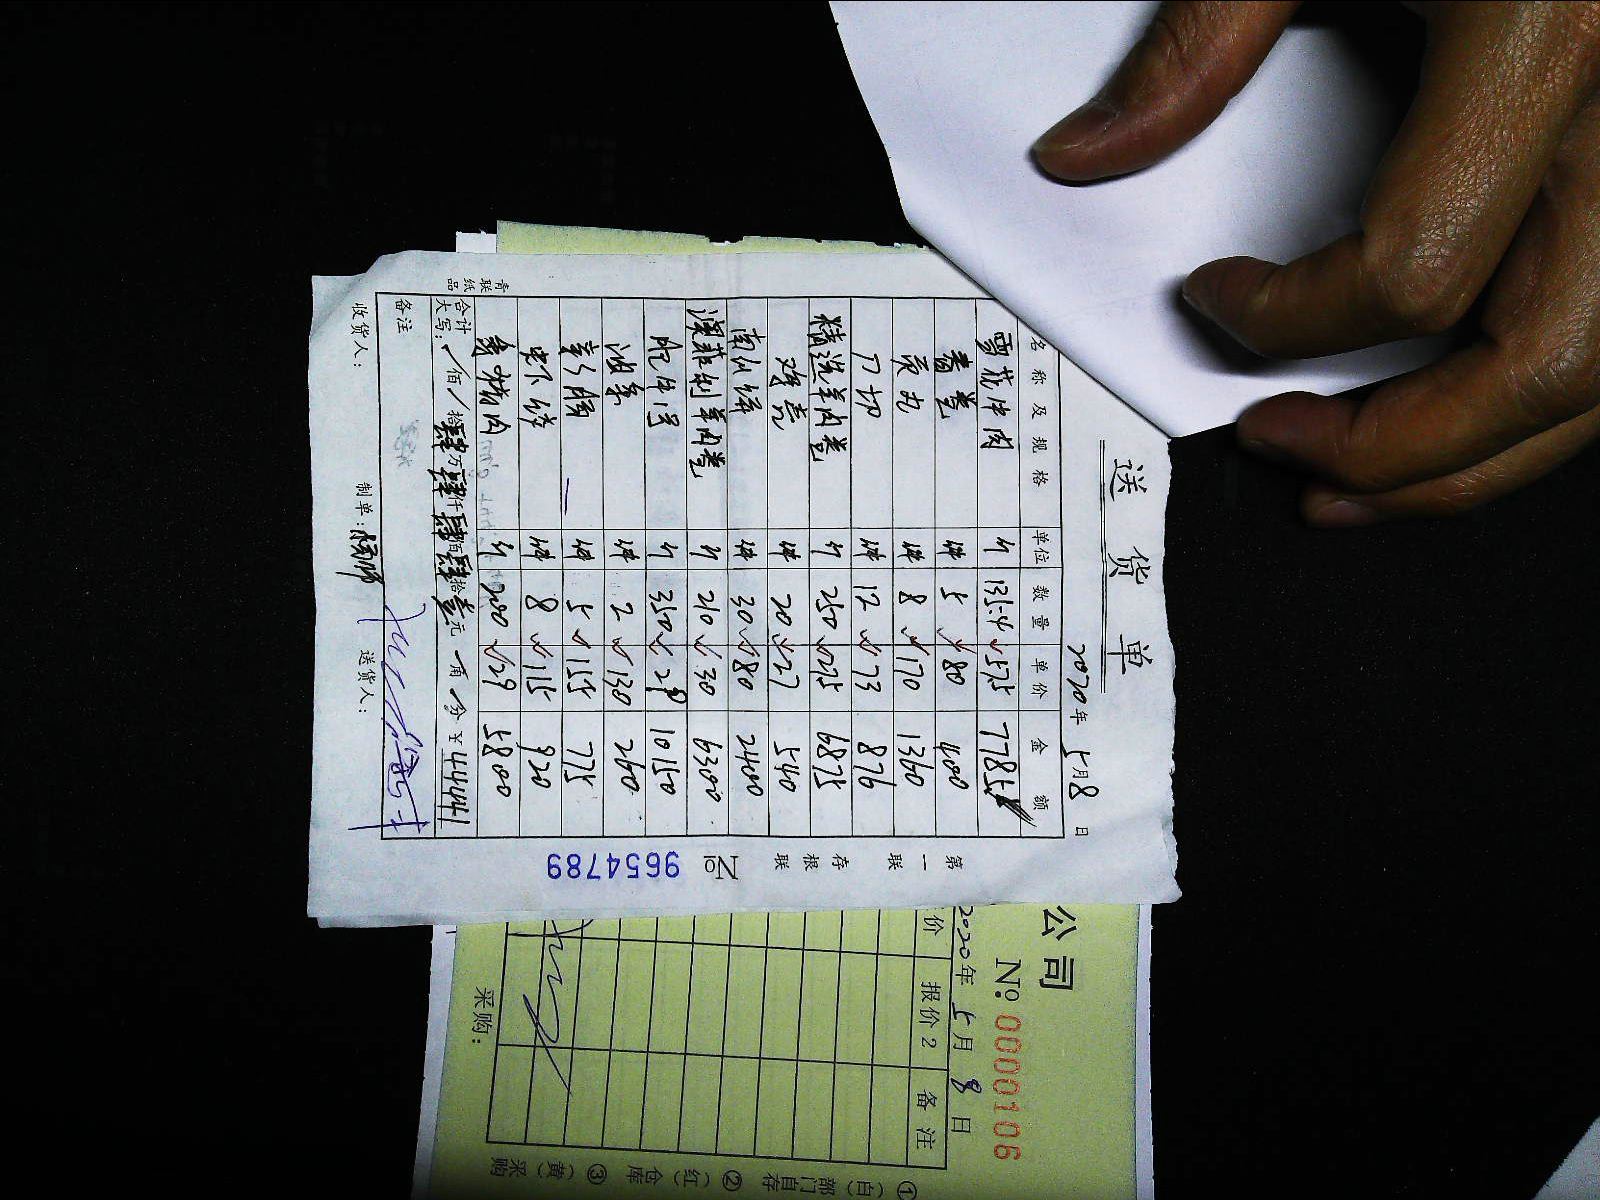 送货单
2020年5月8日
名称及规格 单位 数量 单价 金额
雪花牛肉 斤 135.4 57.5 7785
春卷 件 5 80 400
件 8 170 1360
件 12 73 876
精选羊肉卷 斤 250 27.5 6875
鸡壳 件 20 27 540
南州饼 件 30 80 2400
澳菲利羊肉卷 斤 210 30 6300
斤 350 29 10150
油条 件 2 130 260
件 5 155 775
虾饺 件 8 115 920
斤 200 29 5800
合计大写: 佰 拾肆万肆仟肆佰肆拾壹元 角 分 ¥44441
备注
收货人: 制单: 送货人:
青联纸品
第一联 存根联 No 9654789
公司
No:0000106
2020年5月8日
价 报价2 备注
采购:
①(白)部门自存 ②(红)仓库 ③(黄)采购